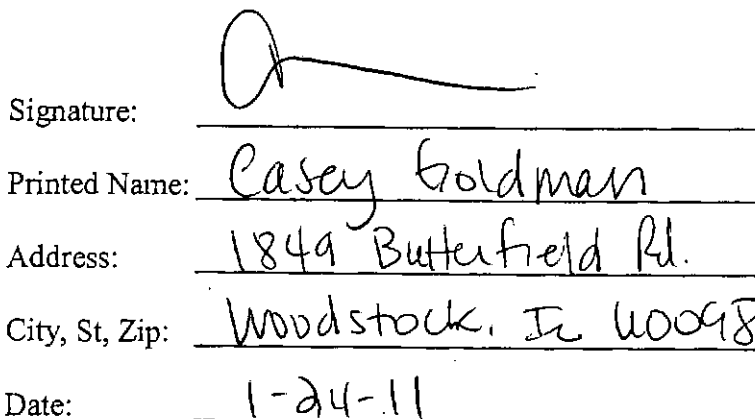 Signature:
Printed Name: Casey Goldman
Address: 1849 Butterfield Rd.
City, St, Zip: Woodstock, IL 60098
Date: 1-24-11